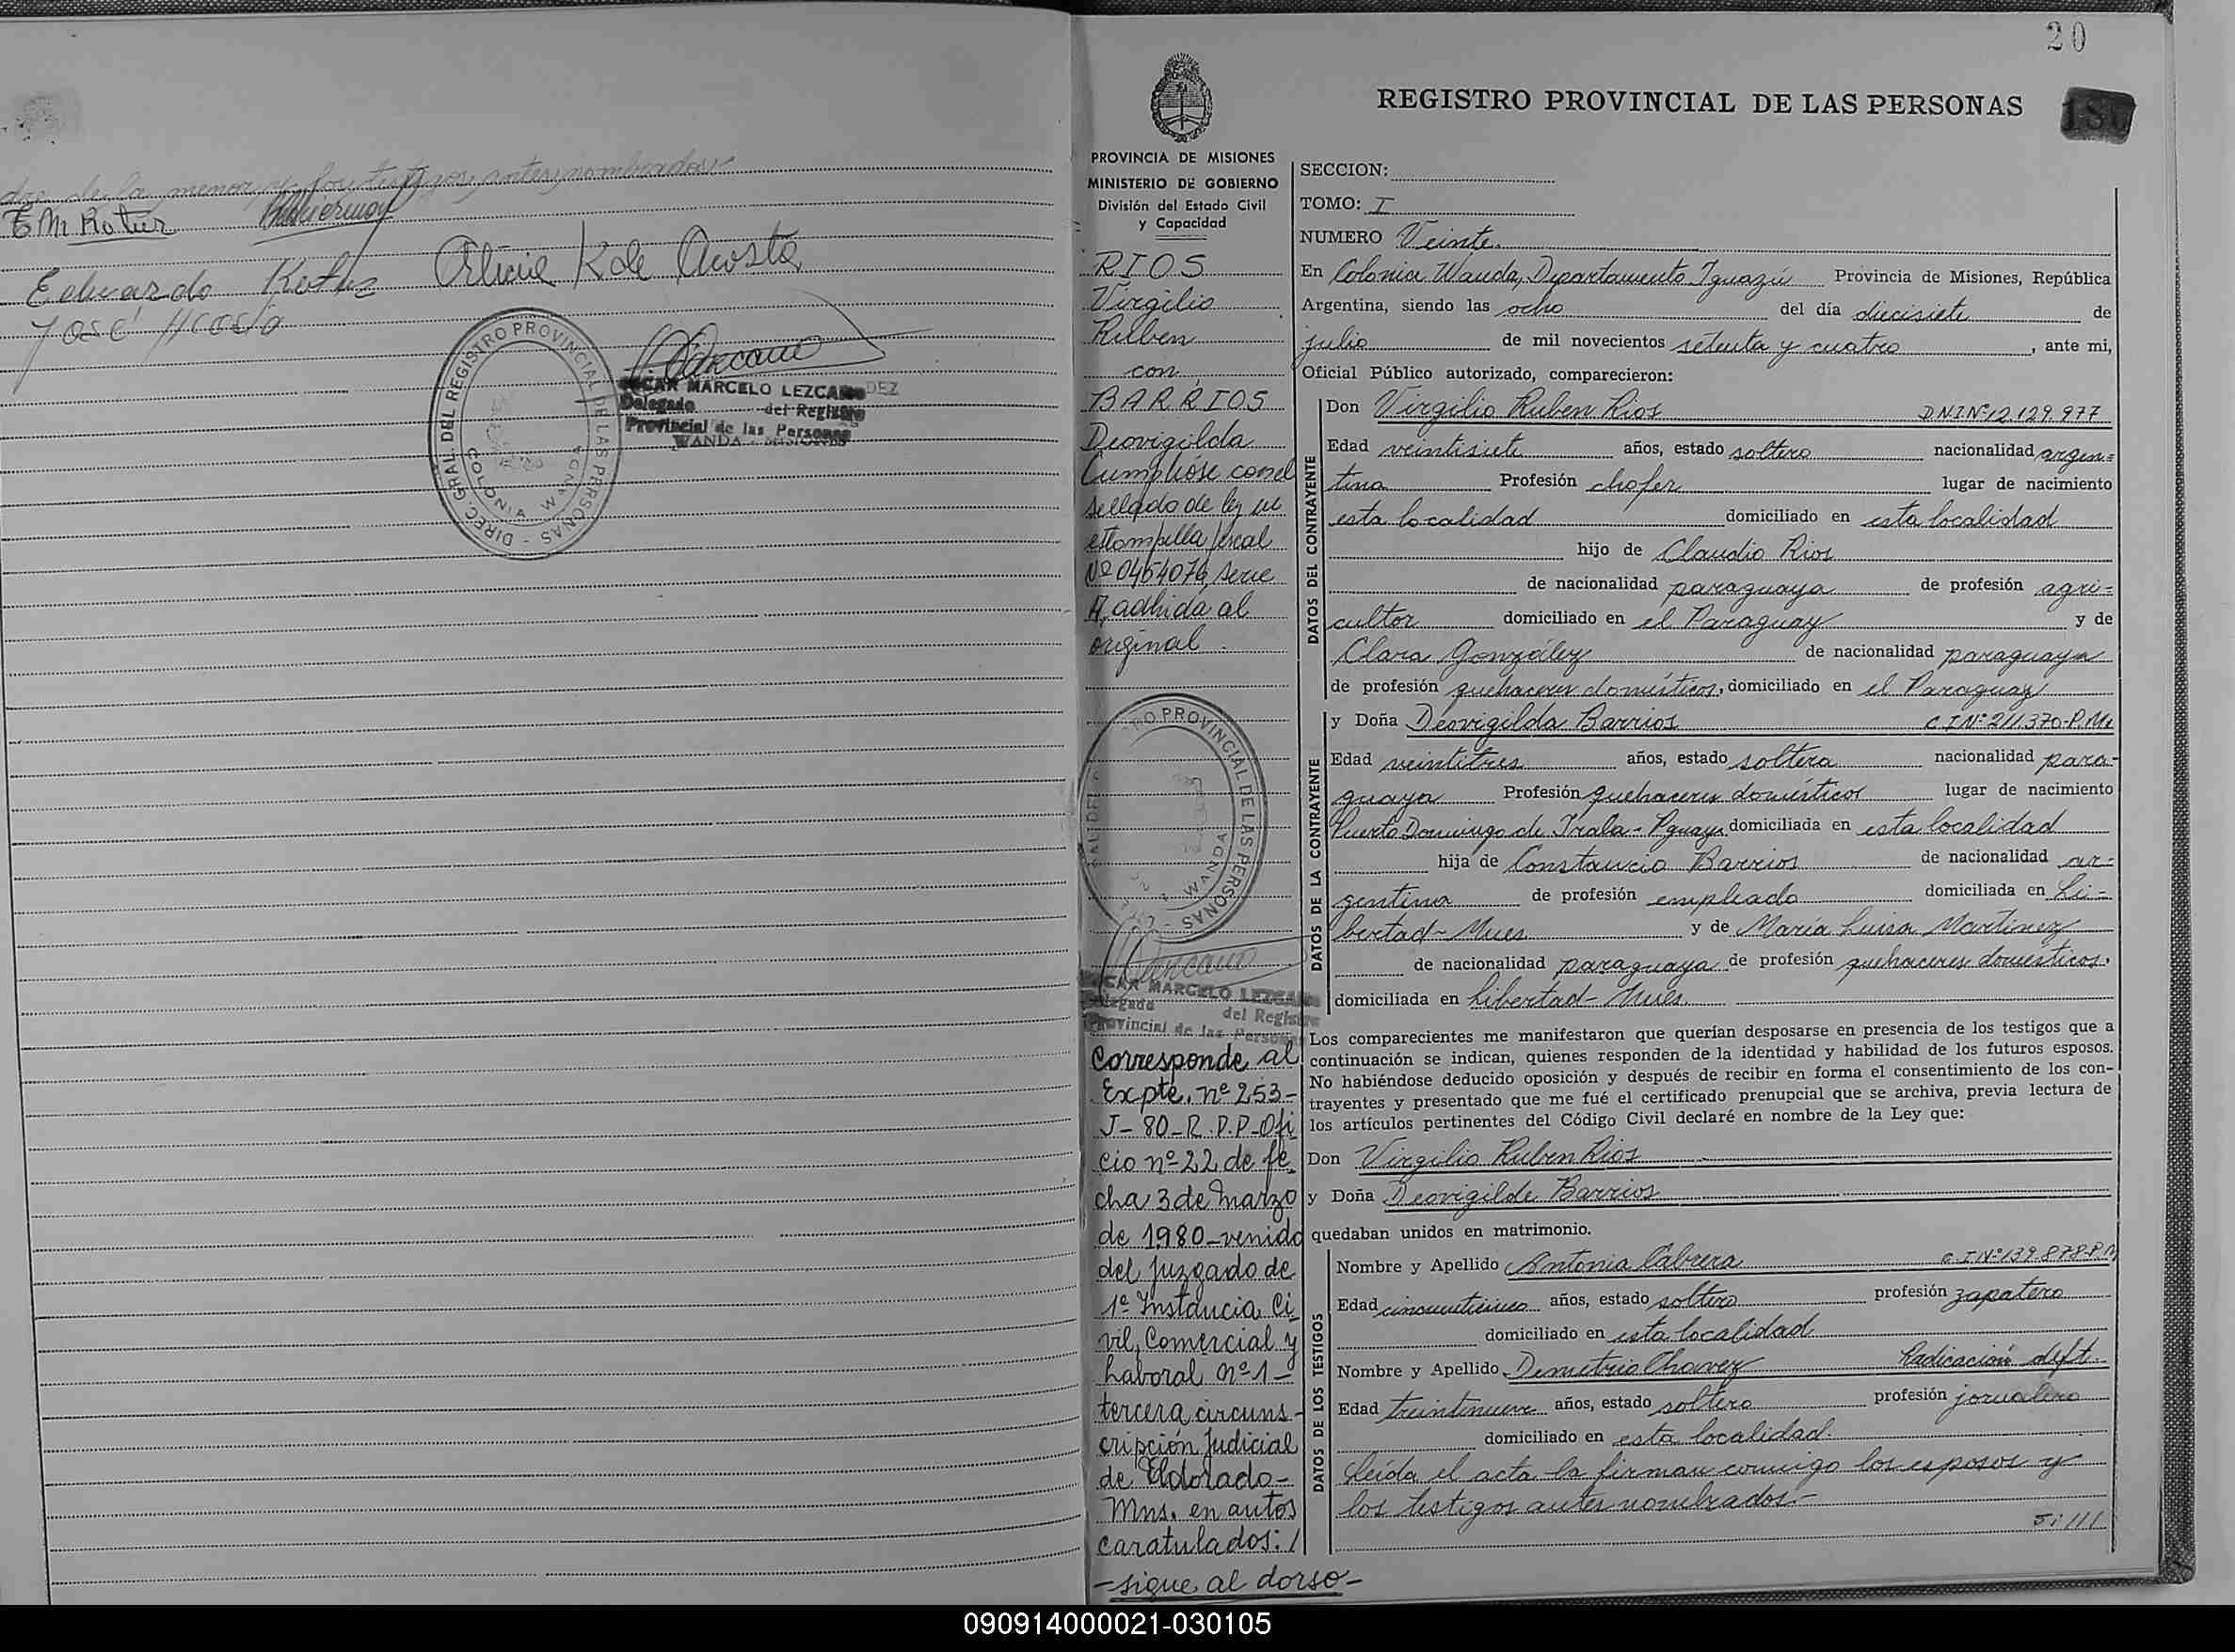 dre de la menor y los testigos antes nombrados.-
E M Rotur
Eduardo
Alicia K de Acosta
José Acosta
DIREC. GRAL. DEL REGISTRO PROVINCIAL DE LAS PERSONAS -
COLONIA WANDA
OSCAR MARCELO LEZCANO
Delegado del Registro
Provincial de las Personas
WANDA - MISIONES
20
REGISTRO PROVINCIAL DE LAS PERSONAS
PROVINCIA DE MISIONES
MINISTERIO DE GOBIERNO
División del Estado Civil
y Capacidad
RIOS
Virgilio
Ruben
con
BARRIOS
Deovigilda
Cumplióse con el
sellado de ley en
estampilla fiscal
Nº 0454076, serie
A, adhida al
original.
PROVINCIAL DE LAS PERSONAS
WANDA
OSCAR MARCELO LEZCANO
Delegado del Registro
Provincial de las Personas
Corresponde al
Expte. nº 253-
J-80-R.P.P-Ofi
cio nº 22 de fe
cha 3 de Marzo
de 1980-venido
del juzgado de
1º Instancia Ci
vil, Comercial y
Laboral nº 1-
tercera circuns-
cripción Judicial
de Eldorado-
Mns. en autos
caratulados: /
-sigue al dorso-
SECCION:
TOMO: I
NUMERO Veinte.
En Colonia Wanda, Departamento Iguazú Provincia de Misiones, República
Argentina, siendo las ocho del día diecisiete de
julio de mil novecientos setenta y cuatro, ante mi,
Oficial Público autorizado, comparecieron:
DATOS DEL CONTRAYENTE
Don Virgilio Ruben Rios DNI Nº 12.129.977
Edad veintisiete años, estado soltero nacionalidad argen=
tina Profesión chofer lugar de nacimiento
esta localidad domiciliado en esta localidad
hijo de Claudio Rios
de nacionalidad paraguaya de profesión agri=
cultor domiciliado en el Paraguay y de
Clara González de nacionalidad paraguaya
de profesión quehaceres domésticos, domiciliado en el Paraguay
DATOS DE LA CONTRAYENTE
y Doña Deovigilda Barrios C.I Nº 211.370-P.Ms
Edad veintitres años, estado soltera nacionalidad para-
guaya Profesión quehaceres domésticos lugar de nacimiento
Puerto Domingo de Irala - Pguay. domiciliada en esta localidad
hija de Constancio Barrios de nacionalidad ar-
gentina de profesión empleado domiciliada en Li=
bertad - Mnes y de María Luisa Martinez
de nacionalidad paraguaya de profesión quehaceres domésticos.
domiciliada en Libertad - Mnes.
Los comparecientes me manifestaron que querían desposarse en presencia de los testigos que a
continuación se indican, quienes responden de la identidad y habilidad de los futuros esposos.
No habiéndose deducido oposición y después de recibir en forma el consentimiento de los con-
trayentes y presentado que me fué el certificado prenupcial que se archiva, previa lectura de
los artículos pertinentes del Código Civil declaré en nombre de la Ley que:
Don Virgilio Ruben Rios
y Doña Deovigilde Barrios
quedaban unidos en matrimonio.
DATOS DE LOS TESTIGOS
Nombre y Apellido Antonia Cabrera C.I Nº 139.878-P.M
Edad cincuenticinco años, estado soltero profesión zapatero
domiciliado en esta localidad
Nombre y Apellido Demetrio Chavez Radicación deft.
Edad treintinueve años, estado soltero profesión jornalero
domiciliado en esta localidad.
Leída el acta la firman conmigo los esposos y
los testigos antes nombrados.-
090914000021-030105